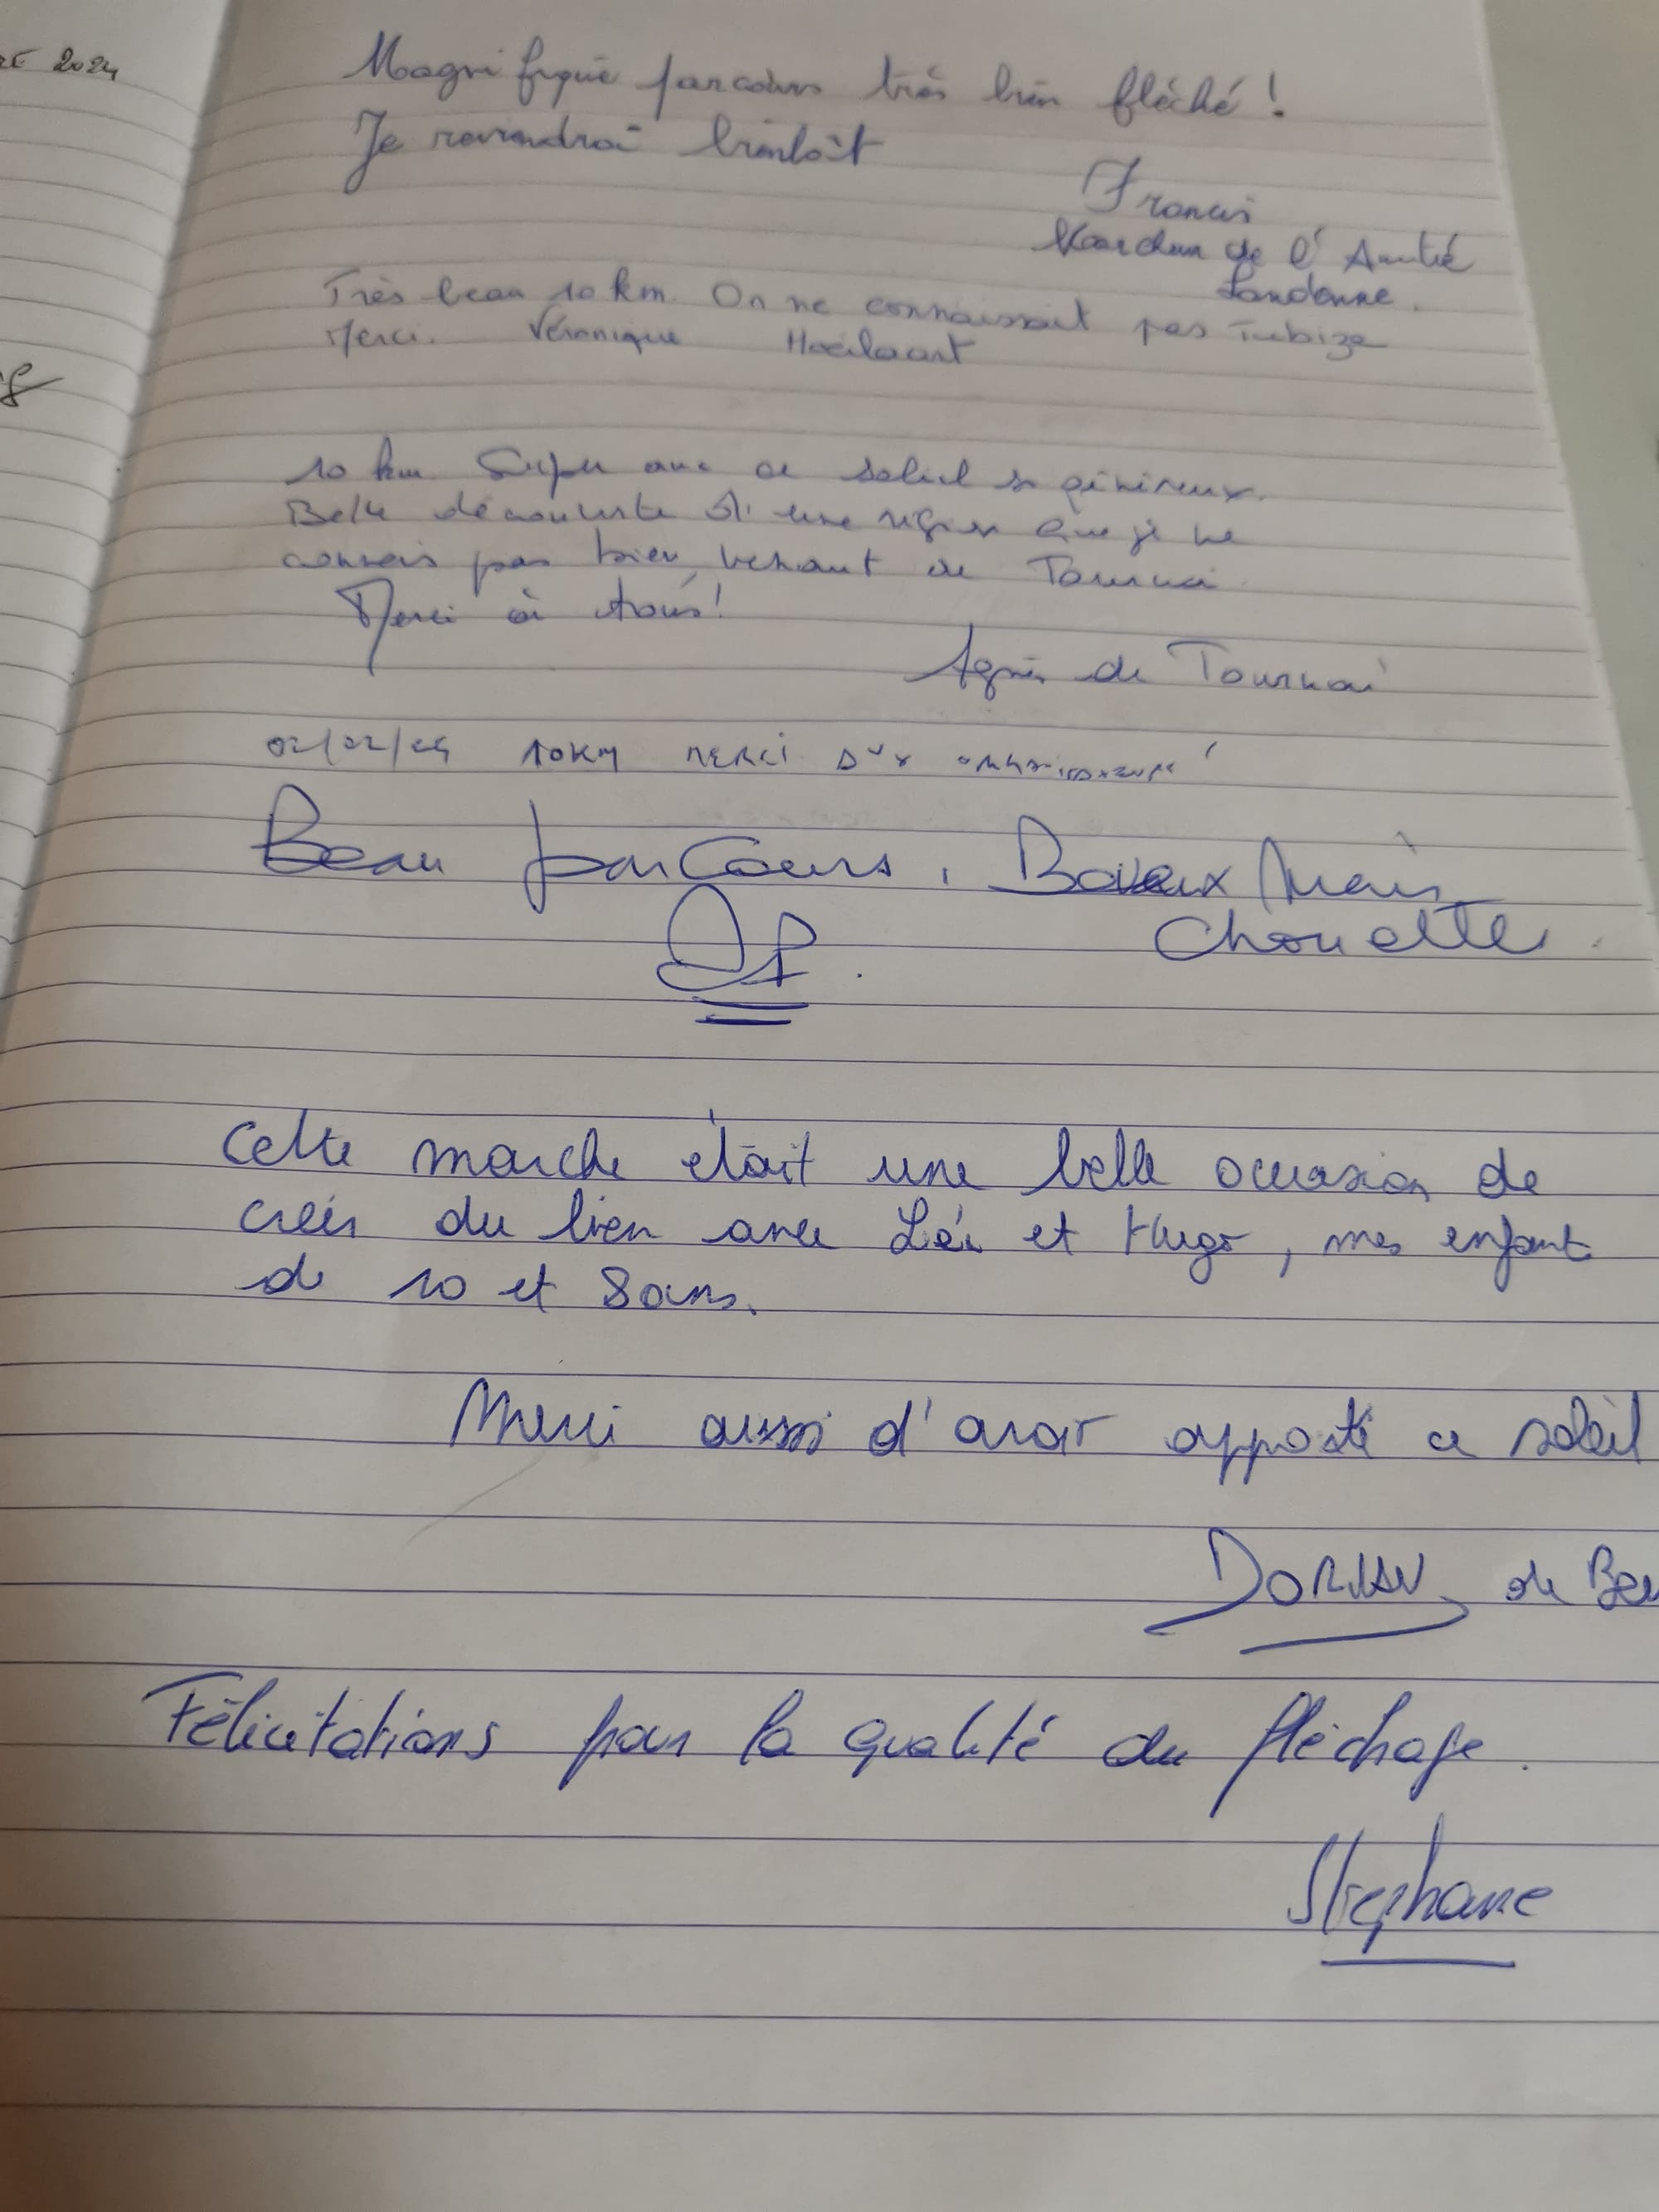 RE 2024
Magnifique parcours très bien fléché !
Je reviendrai bientôt
Francis
Marcheur de l'Amitié
Landenne.
Très beau 10 km. On ne connaissait pas Tubize
Merci. Véronique Hoeilaart
10 km Super avec ce soleil si généreux.
Belle découverte d'une région que je ne
connais pas bien, venant de Tournai
Merci à tous!
Agnès de Tournai
10KM MERCI AUX
Beau parcours, Boueux mais
Chouette.
Cette marche était une belle occasion de
créer du lien avec et Hugo, mes enfant
de 10 et 8 ans.
Merci aussi d'avoir apporté ce soleil
DORIAN de
Félicitations pour la qualité du fléchage.
Stéphane